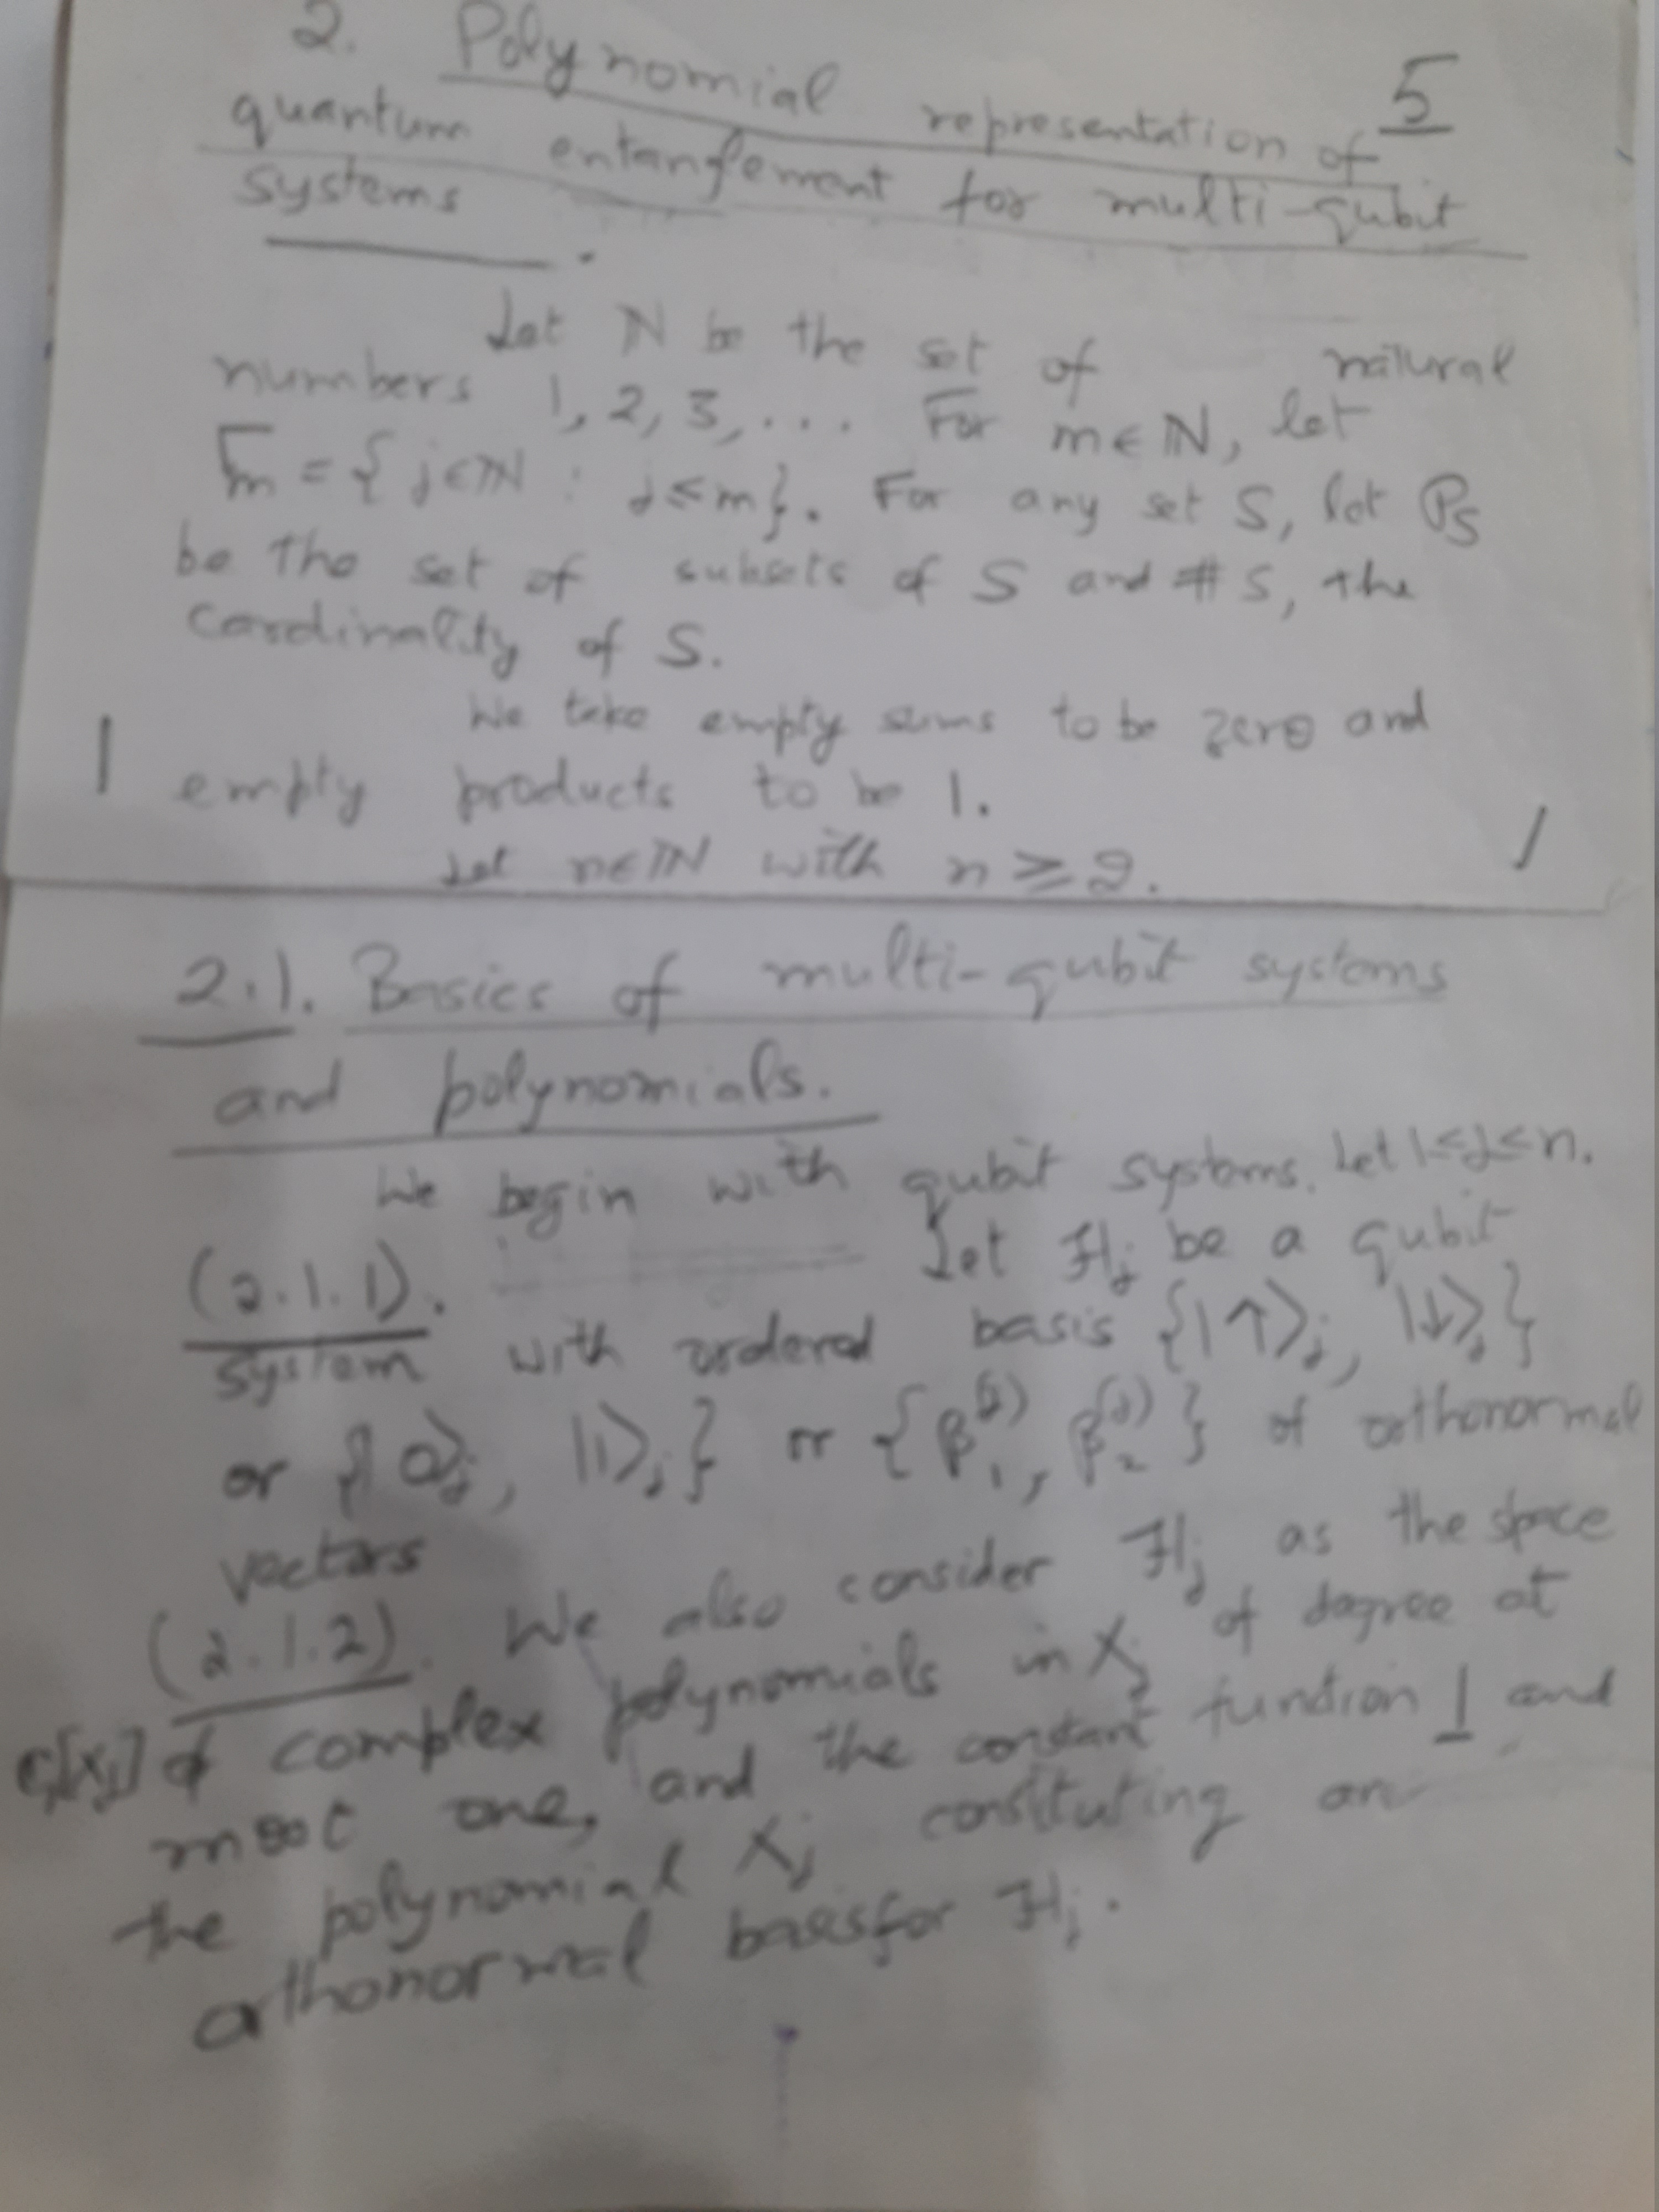 2. Polynomial representation of 5
quantum entanglement for multi-qubit
systems.
Let ℕ be the set of natural
numbers 1, 2, 3, ... For m∈ℕ, let
m̅ = {j∈ℕ : j≤m}. For any set S, let P_S
be the set of subsets of S and #S, the
Cardinality of S.
We take empty sums to be zero and
empty products to be 1.
Let n∈ℕ with n ≥ 2.
2.1. Basics of multi-qubit systems
and polynomials.
We begin with qubit systems. Let 1≤j≤n.
(2.1.1). Let ℋ_j be a qubit
system with ordered basis {|↑⟩_j, |↓⟩_j}
or {|0⟩_j, |1⟩_j} or {β_1^(j), β_2^(j)} of orthonormal
vectors
(2.1.2). We also consider ℋ_j as the space
[X_j] of complex polynomials in X_j of degree at
most one, and the constant function 1 and
the polynomial X_j constituting an
orthonormal basis for ℋ_j.